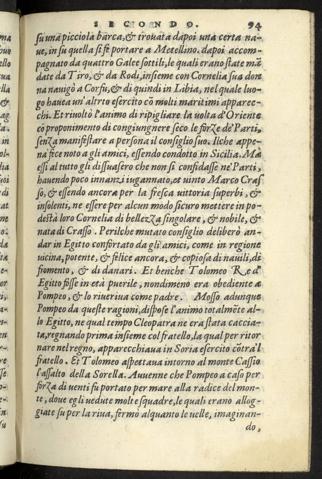 SECONDO. 94
su una picciola barca, & trouata dapoi una certa na-
ue, in su questa si fe portare a Metellino. dapoi accom-
pagnato da quattro Galee sottili, le quali erano state mã
date da Tiro, & da Rodi, insieme con Cornelia sua don
na nauigò a Corfu, & di quindi in Libia, nel quale luo-
go haueua un'altro esercito cõ molti maritimi apparec-
chi. Et riuolto l'animo di ripigliare la uolta d'Oriente
cõ proponimento di congiungnere seco le forze de' Parti,
senza manifestare a persona il consiglio suo. Ilche appe-
na fice noto a gli amici, essendo condotto in Sicilia. Ma
essi al tutto gli dissuasero che non si confidasse ne' Parti,
hauendo poco innanzi iugannato, et uinto Marco Cras
so, & essendo ancora per la fresca uittoria superbi, &
insolenti, ne essere per alcun modo sicuro mettere in po-
destà loro Cornelia di bellezza singolare, & nobile, &
nata di Crasso. Perilche mutato consiglio deliberò an-
dar in Egitto confortato da gli amici, come in regione
uicina, potente, & felice ancora, & copiosa di nauili, di
fromento, & di danari. Et benche Tolomeo Re d'
Egitto fosse in età puerile, nondimeno era obediente a
Pompeo, & lo riueriua come padre. Mosso adunque
Pompeo da queste ragioni, dispose l'animo totalmẽte al-
lo Egitto, ne qual tempo Cleopatra ne era stata caccia-
ta, regnando prima insieme col fratello, la qual per ritor
nare nel regno, apparecchiaua in Soria esercito cõtra'l
fratello. Et Tolomeo aspettaua intorno al monte Cassio
l'assalto della Sorella. Auuenne che Pompeo a caso per
forza di uenti fu portato per mare alla radice del mon-
te, doue egli uedute molte squadre, le quali erano allog-
giate su per la riua, fermò alquanto le uelle, imaginan-
do,